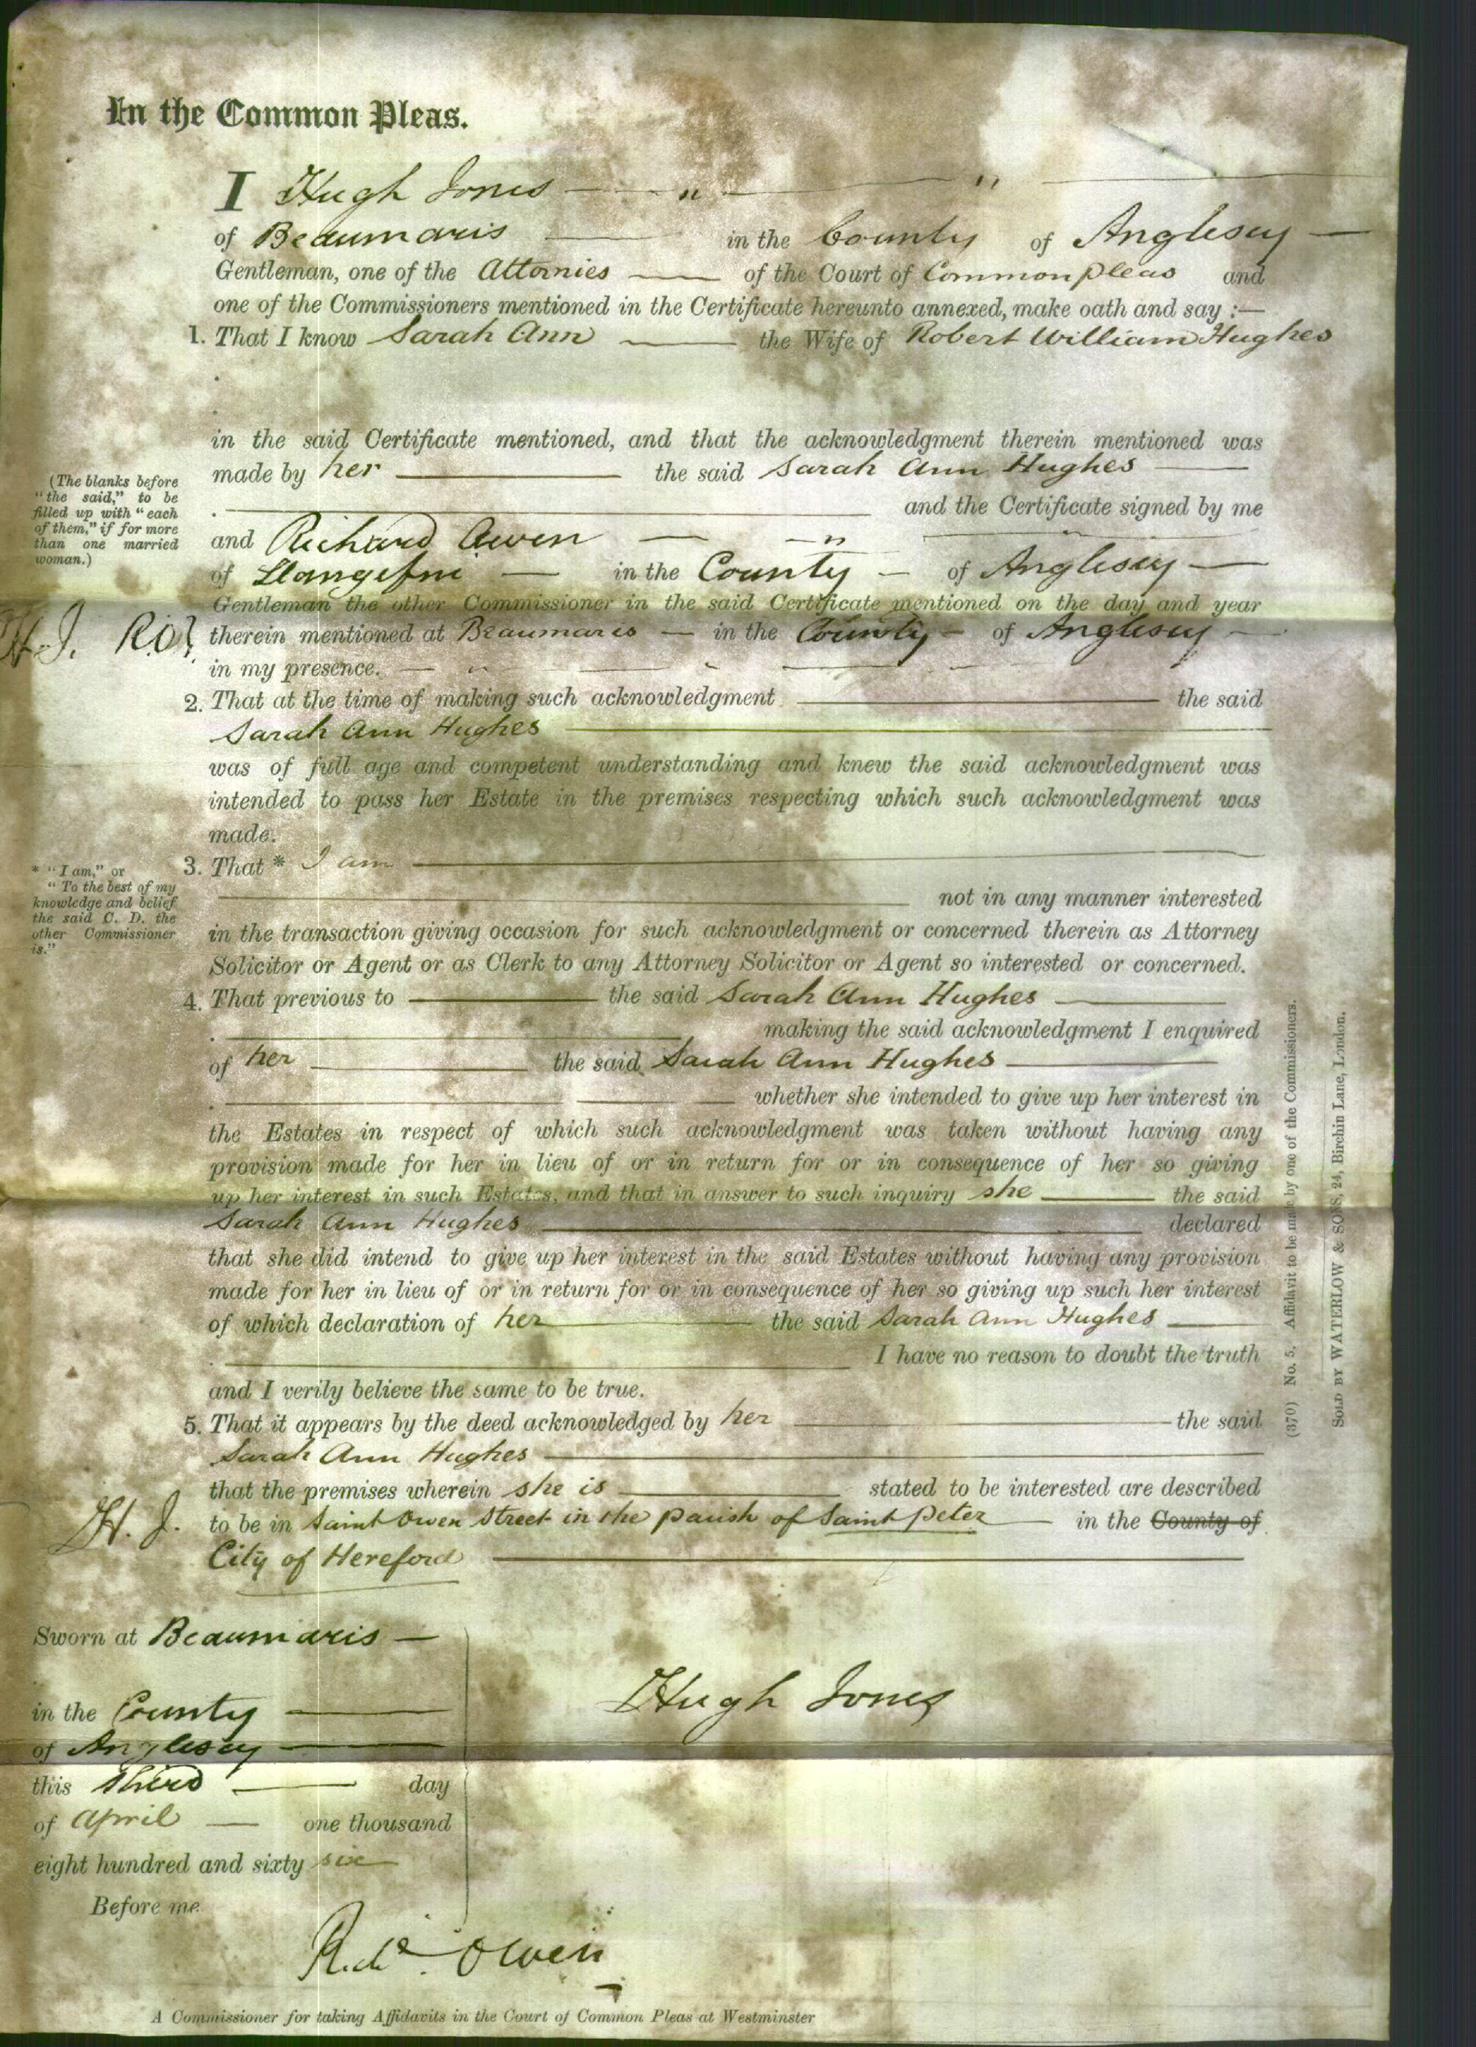 In the Common Pleas.
I Hugh Jones — " — "
of Beaumaris — in the County of Anglesey —
Gentleman, one of the Attornies — of the Court of Common pleas and
one of the Commissioners mentioned in the Certificate hereunto annexed, make oath and say :—
1. That I know Sarah Ann — the Wife of Robert William Hughes
in the said Certificate mentioned, and that the acknowledgment therein mentioned was
made by her — the said Sarah Ann Hughes —
(The blanks before
"the said," to be
filled up with "each
of them," if for more
than one married
woman.)
— and the Certificate signed by me
and Richard Owen — " —
of Llangefni — in the County — of Anglesey —
Gentleman the other Commissioner in the said Certificate mentioned on the day and year
H.J. R.O. therein mentioned at Beaumaris — in the County — of Anglesey —
in my presence. — " — " —
2. That at the time of making such acknowledgment — the said
Sarah Ann Hughes —
was of full age and competent understanding and knew the said acknowledgment was
intended to pass her Estate in the premises respecting which such acknowledgment was
made.
3. That * I am —
* "I am," or
"To the best of my
knowledge and belief
the said C. D. the
other Commissioner
is."
— not in any manner interested
in the transaction giving occasion for such acknowledgment or concerned therein as Attorney
Solicitor or Agent or as Clerk to any Attorney Solicitor or Agent so interested or concerned.
4. That previous to — the said Sarah Ann Hughes —
— making the said acknowledgment I enquired
of her — the said Sarah Ann Hughes —
— whether she intended to give up her interest in
the Estates in respect of which such acknowledgment was taken without having any
provision made for her in lieu of or in return for or in consequence of her so giving
up her interest in such Estates, and that in answer to such inquiry she — the said
Sarah Ann Hughes — declared
that she did intend to give up her interest in the said Estates without having any provision
made for her in lieu of or in return for or in consequence of her so giving up such her interest
of which declaration of her — the said Sarah Ann Hughes —
— I have no reason to doubt the truth
and I verily believe the same to be true.
5. That it appears by the deed acknowledged by her — the said
Sarah Ann Hughes —
that the premises wherein she is — stated to be interested are described
H. J. to be in Saint Owen Street in the parish of Saint Peter — in the County of
City of Hereford —
Sworn at Beaumaris —
in the County —
of Anglesey —
this third — day
of April — one thousand
eight hundred and sixty six
Before me
Hugh Jones
Rd. Owen
A Commissioner for taking Affidavits in the Court of Common Pleas at Westminster
(370) No. 5. Affidavit to be made by one of the Commissioners.
SOLD BY WATERLOW & SONS, 24, Birchin Lane, London.